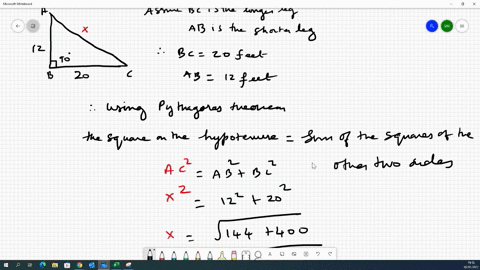 Microsoft Whiteboard
A
Assume BC is the longer leg
x
AB is the shorter leg
12
90°
B
20
C
∴ BC = 20 feet
AB = 12 feet
∴ using Pythagoras theorem
the square on the hypotenuse = Sum of the squares of the
other two sides
AC² = AB² + BC²
x² = 12² + 20²
x = √144 + 400